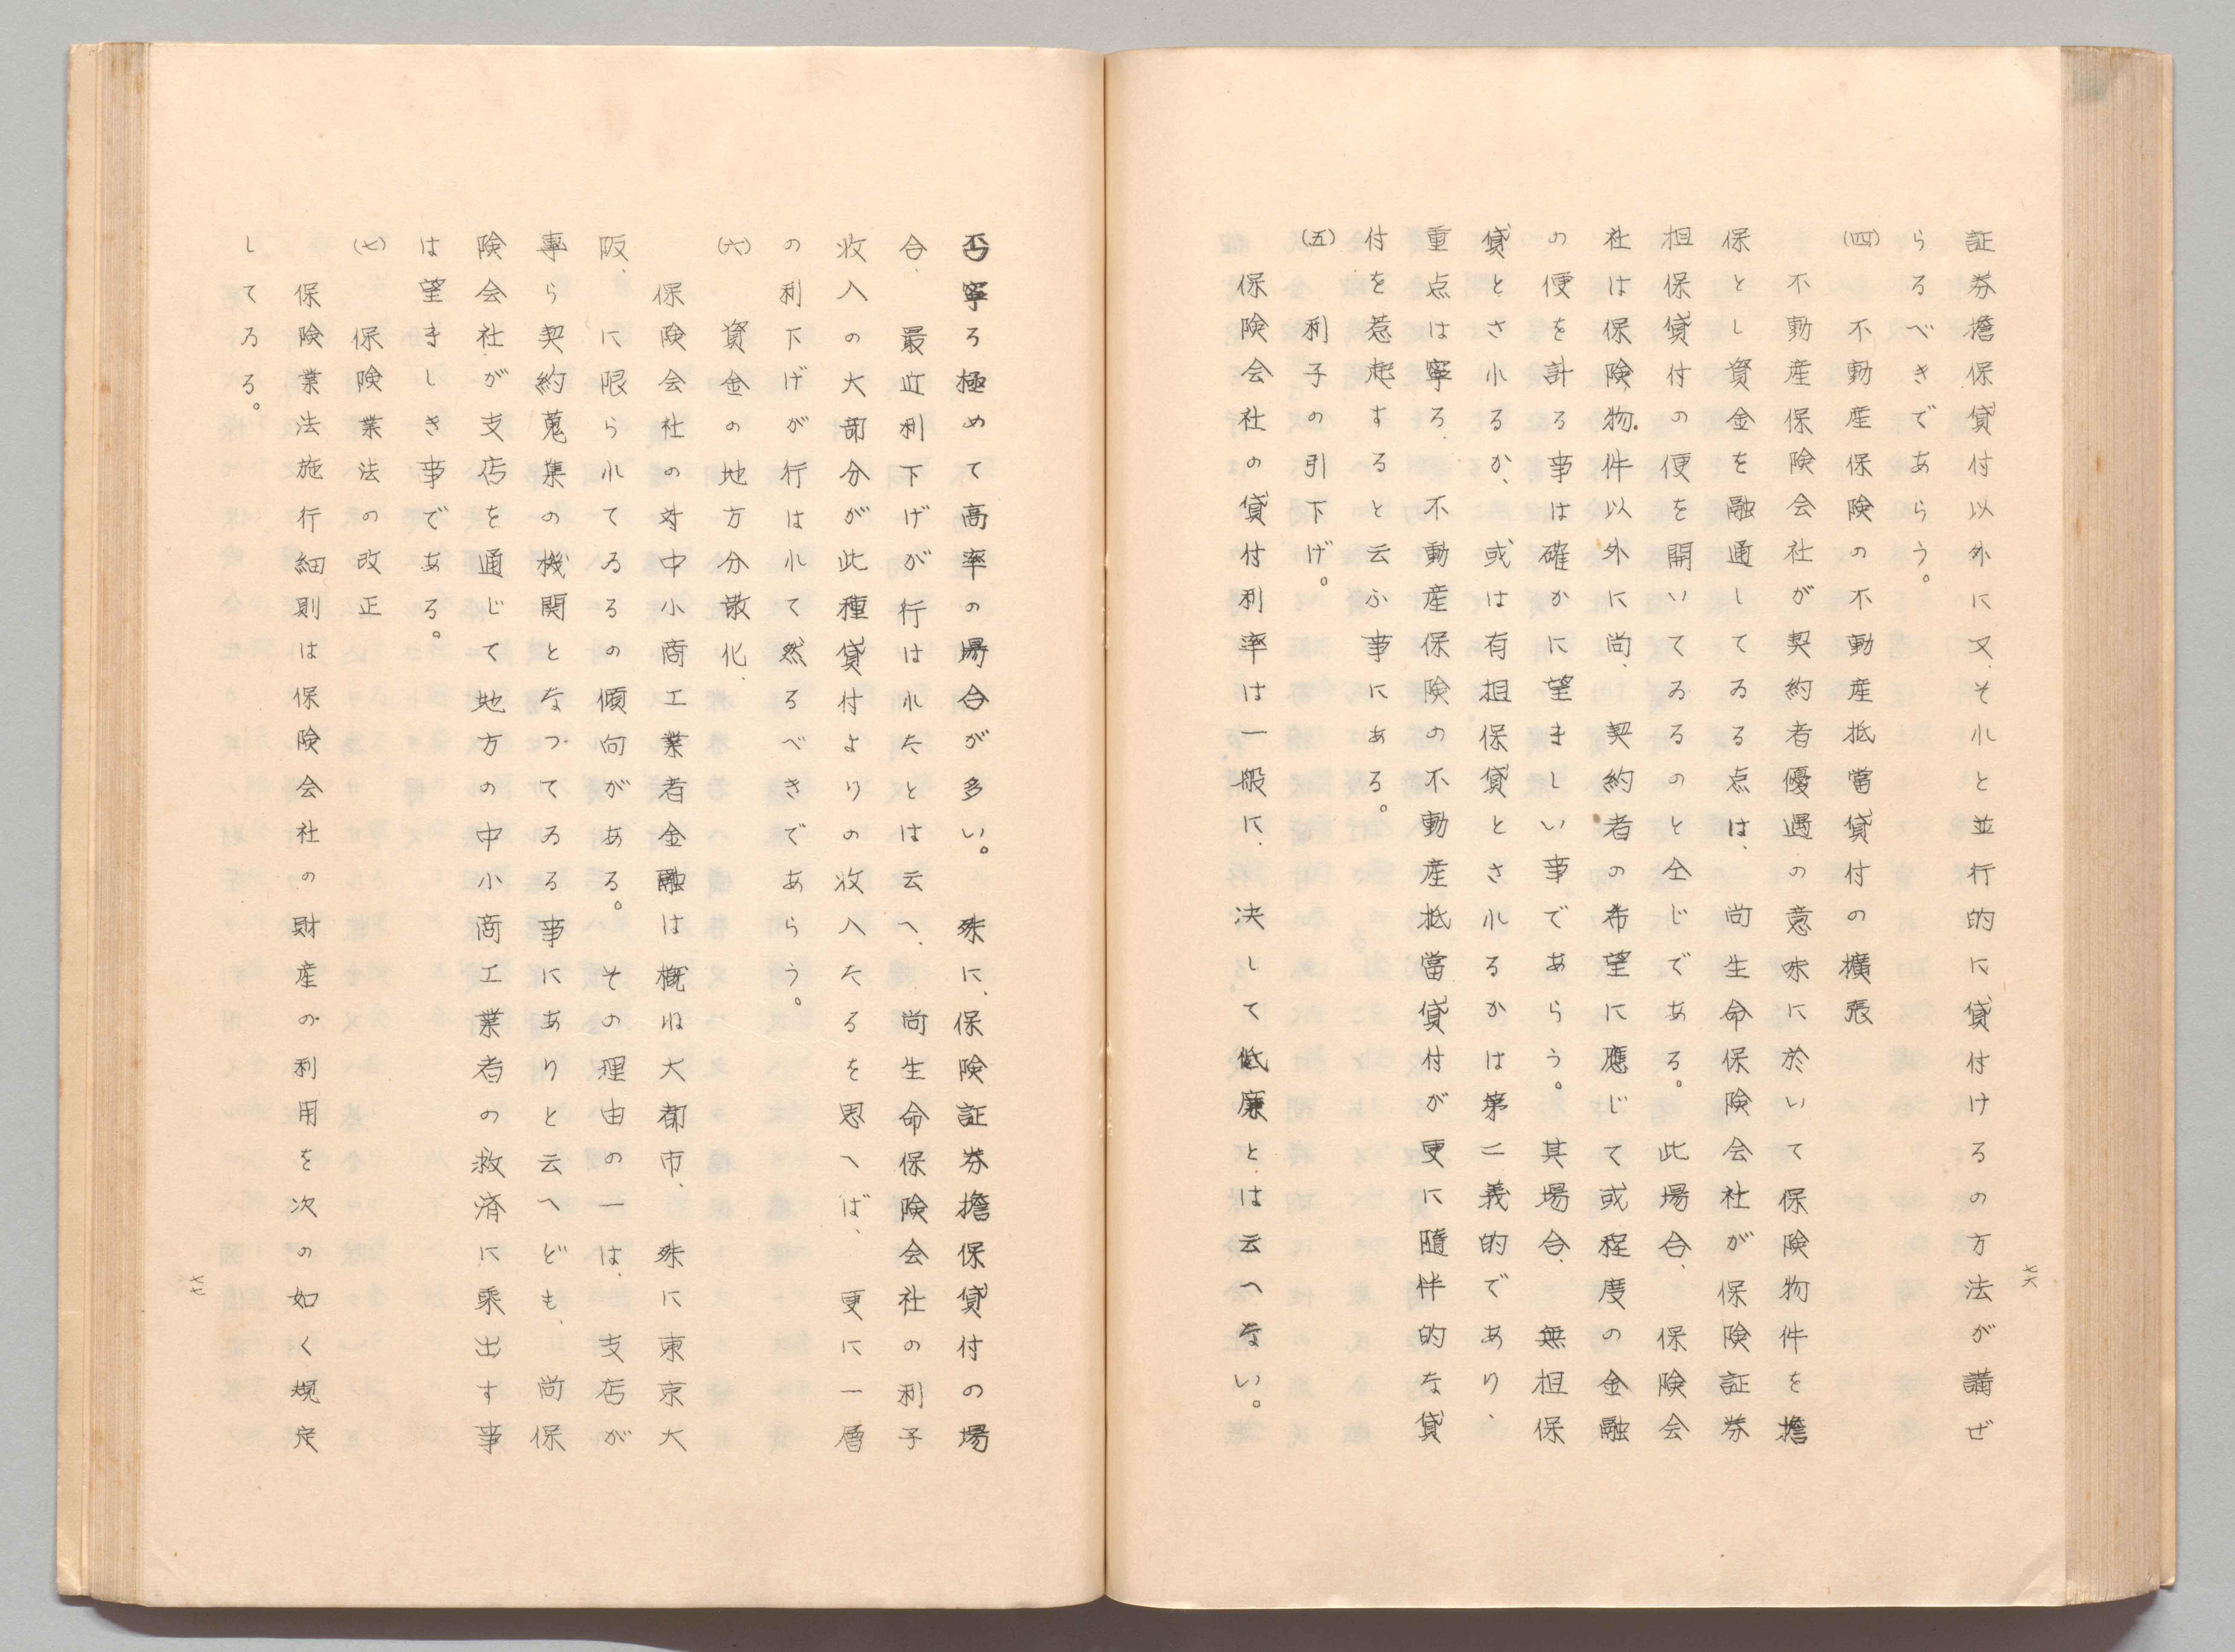 証券擔保貸付以外に又、それと並行的に貸付けるの方法が講ぜ
らるべきであらう。
(四)　不動産保険の不動産抵當貸付の擴張
不動産保険会社が契約者優遇の意味に於いて保険物件を擔
保とし資金を融通してゐる点は、尚生命保険会社が保険証券
担保貸付の便を開いてゐるのと仝じである。此場合、保険会
社は保険物件以外に尚、契約者の希望に應じて或程度の金融
の便を計る事は確かに望ましい事であらう。其場合、無担保
貸とされるか、或は有担保貸とされるかは第二義的であり、
重点は寧ろ、不動産保険の不動産抵當貸付が更に隨伴的な貸
付を惹起すると云ふ事にある。
(五)　利子の引下げ。
保険会社の貸付利率は一般に、決して低廉とは云へない。
七六
否寧ろ極めて高率の場合が多い。殊に、保険証券擔保貸付の場
合、最近利下げが行はれたとは云へ、尚生命保険会社の利子
收入の大部分が此種貸付よりの收入たるを思へば、更に一層
の利下げが行はれて然るべきであらう。
(六)　資金の地方分散化、
保険会社の対中小商工業者金融は概ね大都市、殊に東京大
阪、に限られてゐるの傾向がある。その理由の一は、支店が
專ら契約蒐集の機関となつてゐる事にありと云へども、尚保
険会社が支店を通じて地方の中小商工業者の救済に乘出す事
は望ましき事である。
(七)　保険業法の改正
保険業法施行細則は保険会社の財産の利用を次の如く規定
してゐる。
七七